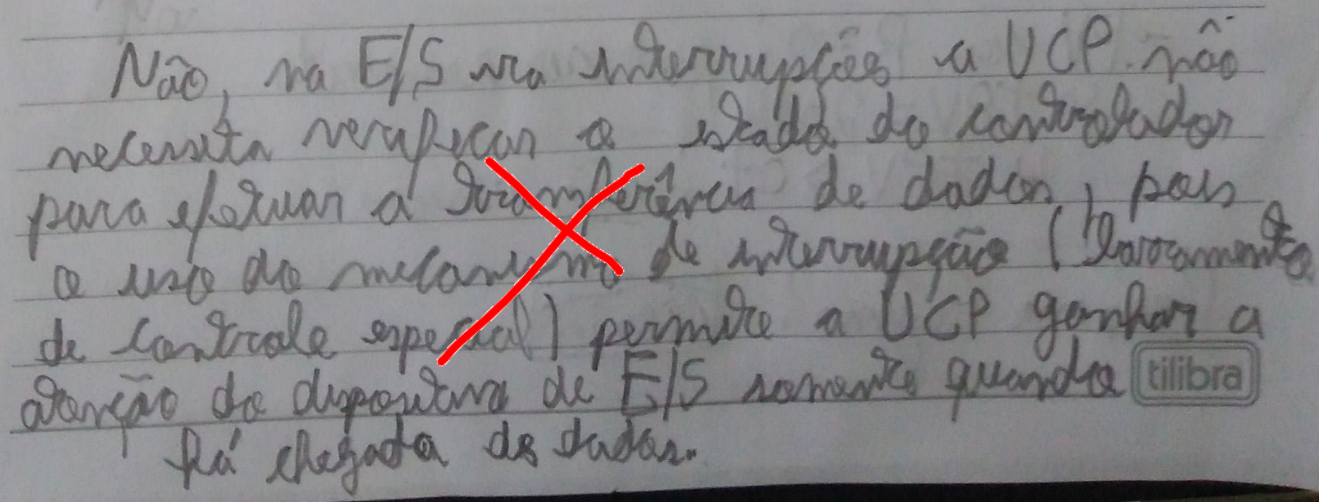 Não, na E/S via interrupções a UCP não
necessita verificar o estado do controlador
para efetuar a transferência de dados, pois
o uso do mecanismo de interrupção (barramento
de controle especial) permite a UCP ganhar a
atenção do dispositivo de E/S somente quando tilibra
há chegada de dados.